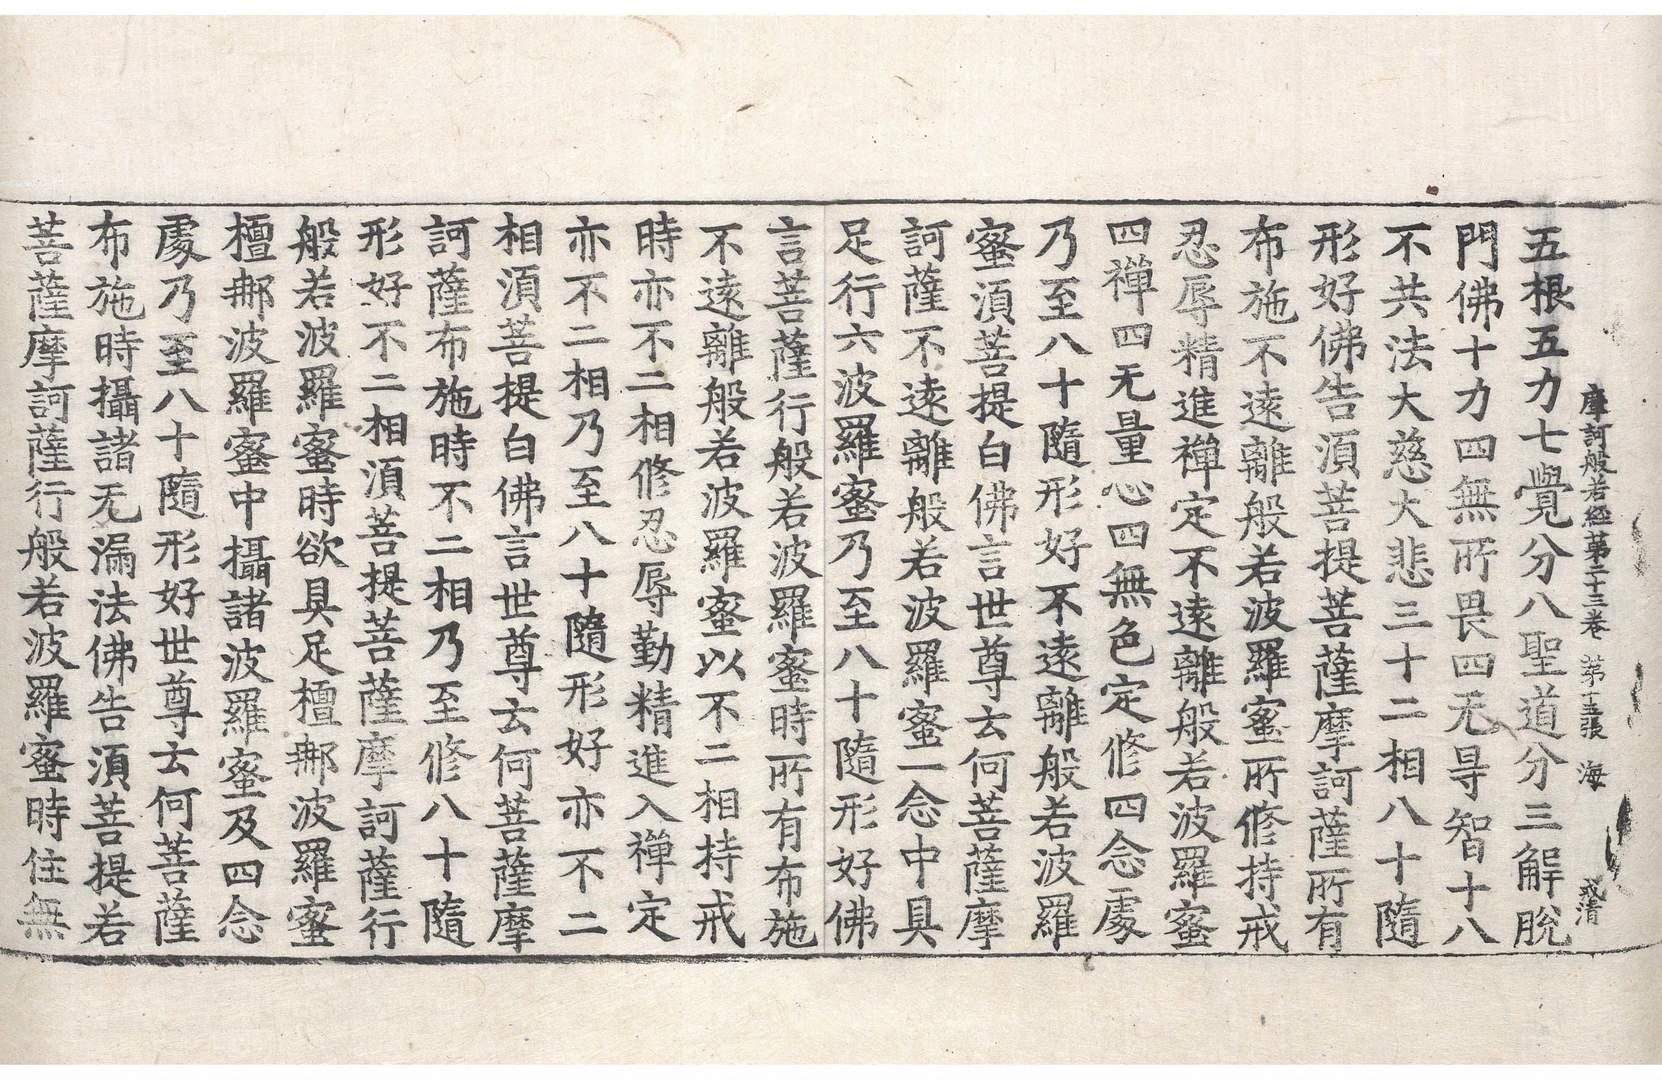 摩訶般若經第二十三卷 第十五張 海 戒清
五根五力七覺分八聖道分三解脫
門佛十力四無所畏四无㝵智十八
不共法大慈大悲三十二相八十隨
形好佛告湏菩提菩薩摩訶薩所有
布施不逺離般若波羅蜜所修持戒
忍辱精進禪定不逺離般若波羅蜜
四禪四无量心四無色定修四念處
乃至八十隨形好不逺離般若波羅
蜜湏菩提白佛言世尊云何菩薩摩
訶薩不逺離般若波羅蜜一念中具
足行六波羅蜜乃至八十隨形好佛
言菩薩行般若波羅蜜時所有布施
不逺離般若波羅蜜以不二相持戒
時亦不二相修忍辱勤精進入禪定
亦不二相乃至八十隨形好亦不二
相湏菩提白佛言世尊云何菩薩摩
訶薩布施時不二相乃至修八十隨
形好不二相湏菩提菩薩摩訶薩行
般若波羅蜜時欲具足檀𨚗波羅蜜
檀𨚗波羅蜜中攝諸波羅蜜及四念
處乃至八十隨形好世尊云何菩薩
布施時攝諸无漏法佛告湏菩提若
菩薩摩訶薩行般若波羅蜜時住無